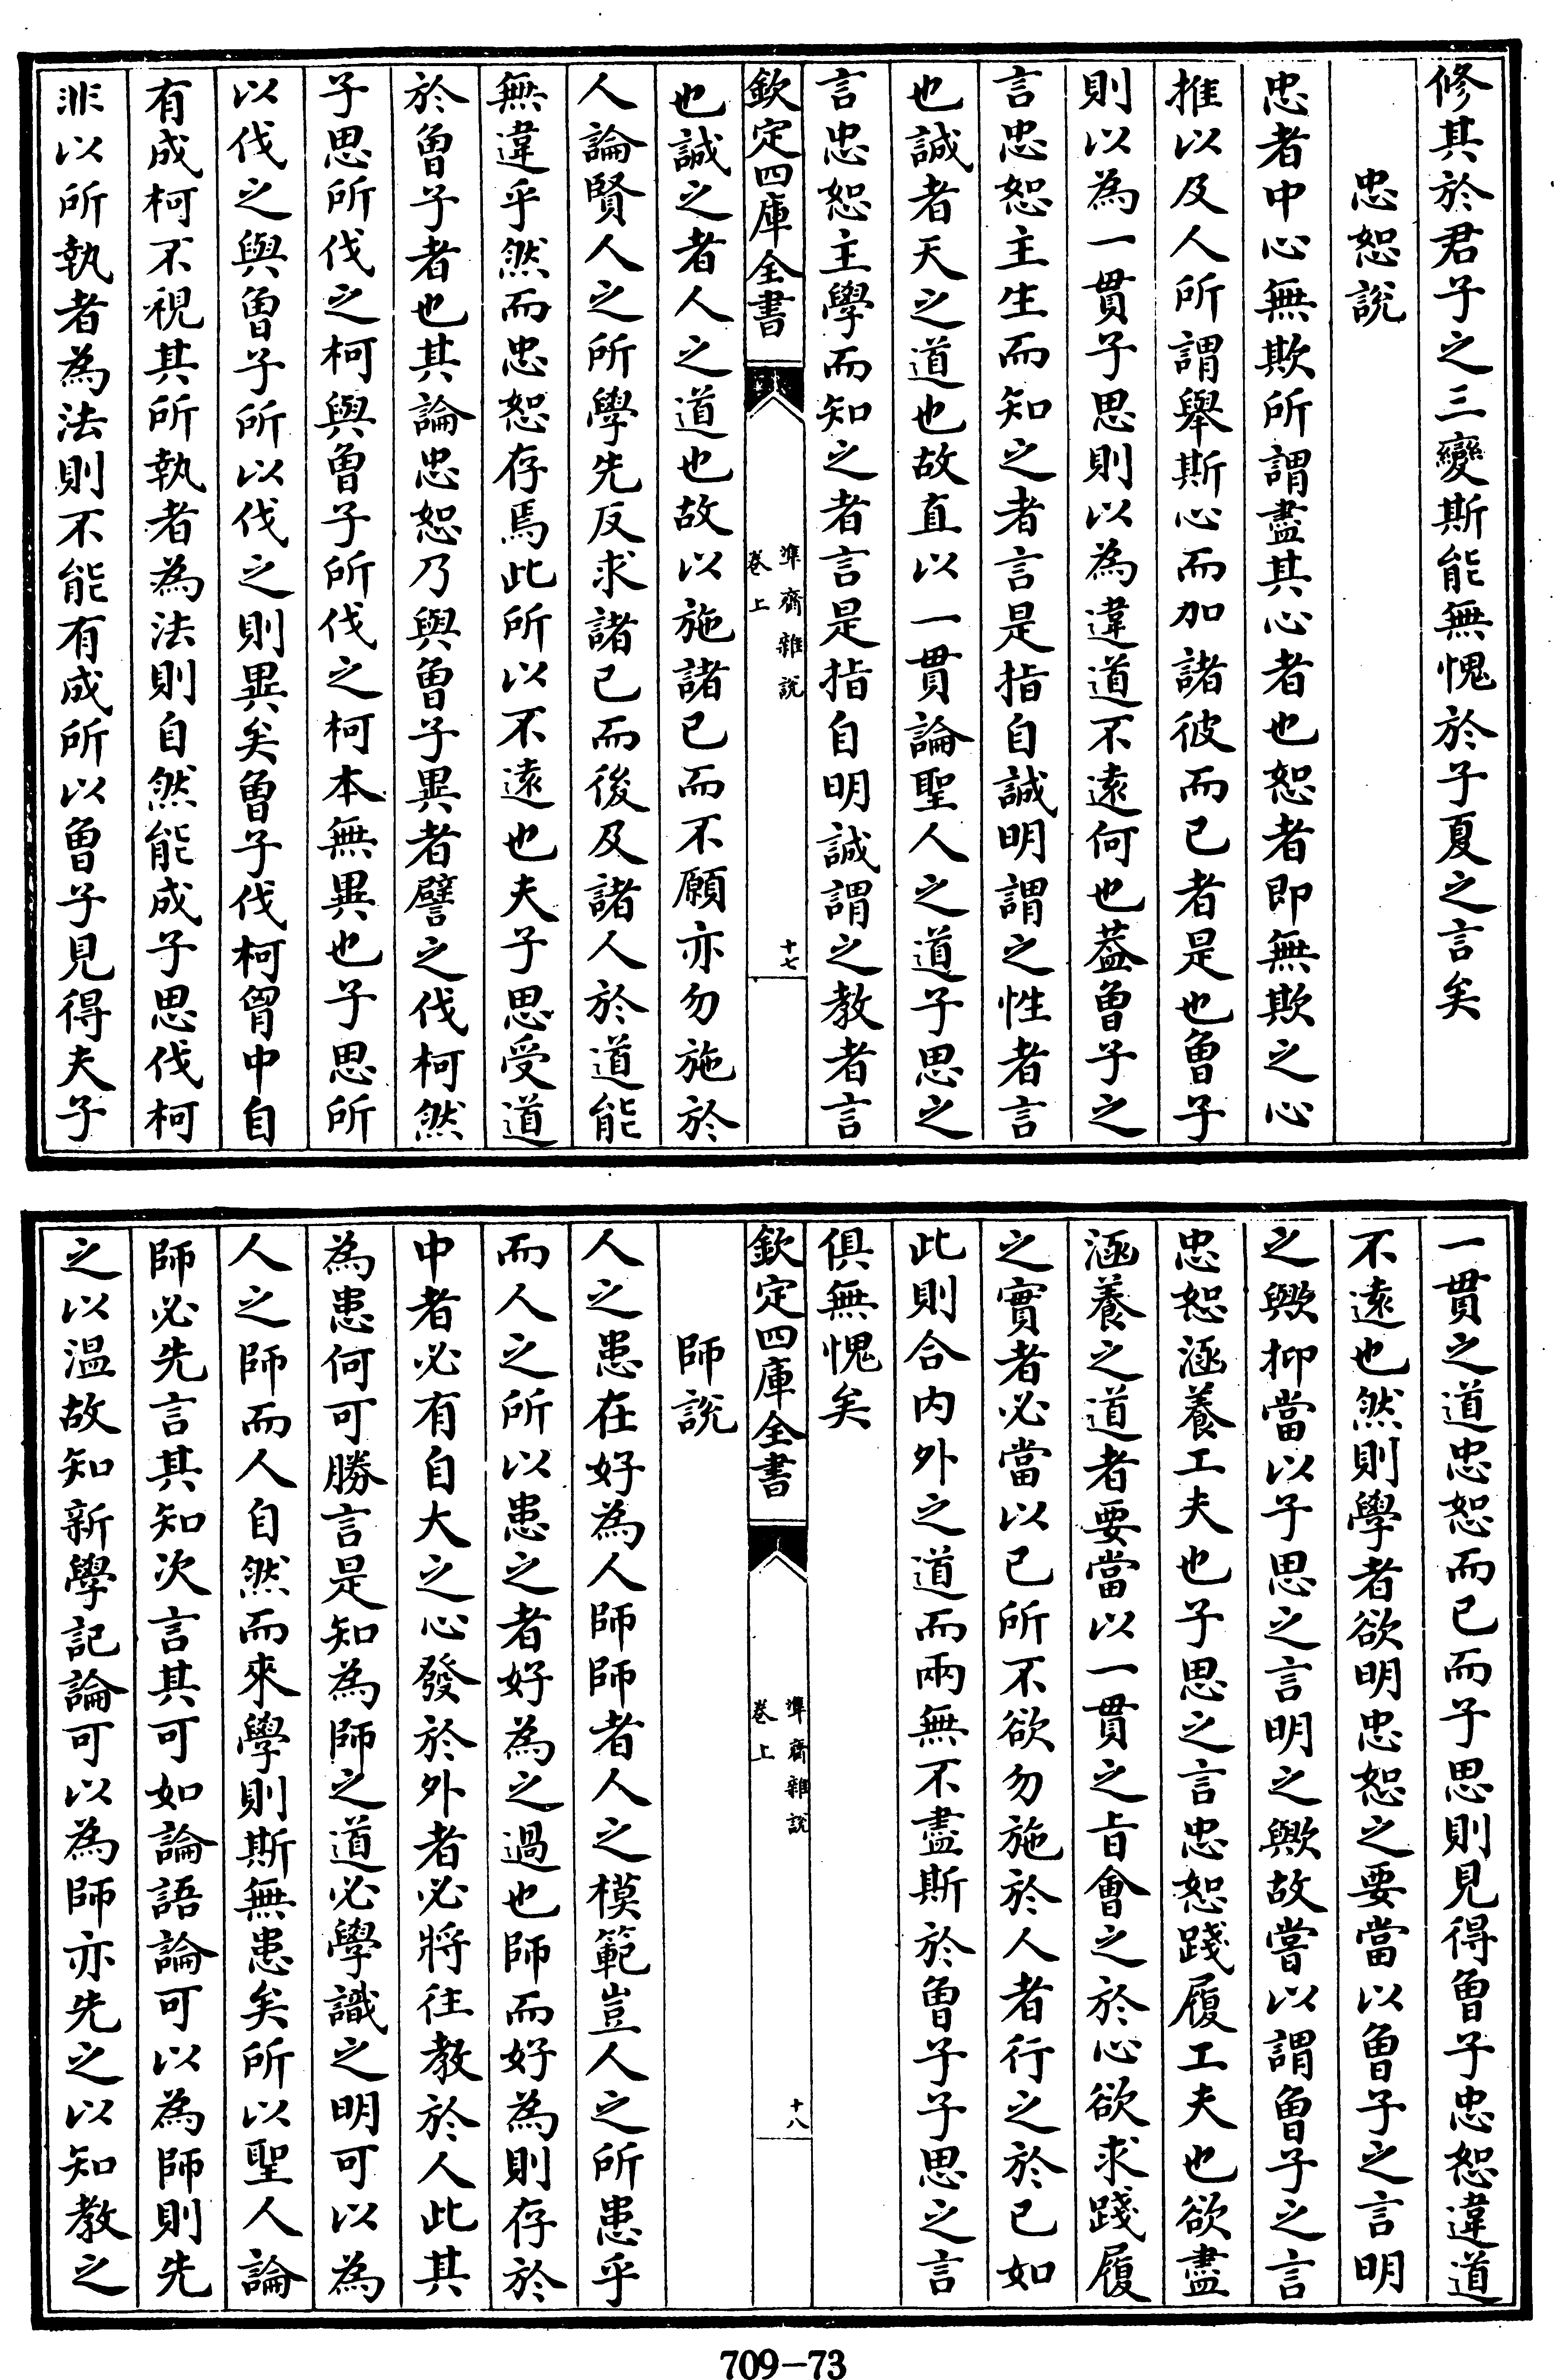 修其於君子之三變斯能無愧於子夏之言矣
忠恕說
忠者中心無欺所謂盡其心者也恕者即無欺之心
推以及人所謂舉斯心而加諸彼而已者是也曾子
則以為一貫子思則以為違道不遠何也蓋曾子之
言忠恕主生而知之者言是指自誠明謂之性者言
也誠者天之道也故直以一貫論聖人之道子思之
言忠恕主學而知之者言是指自明誠謂之教者言
欽定四庫全書
準齋雜說
卷上
十七
也誠之者人之道也故以施諸已而不願亦勿施於
人論賢人之所學先反求諸已而後及諸人於道能
無違乎然而忠恕存焉此所以不遠也夫子思受道
於曾子者也其論忠恕乃與曾子異者譬之伐柯然
子思所伐之柯與曾子所伐之柯本無異也子思所
以伐之與曾子所以伐之則異矣曾子伐柯胷中自
有成柯不視其所執者為法則自然能成子思伐柯
非以所執者為法則不能有成所以曾子見得夫子
一貫之道忠恕而已而子思則見得曾子忠恕違道
不遠也然則學者欲明忠恕之要當以曾子之言明
之歟抑當以子思之言明之歟故嘗以謂曾子之言
忠恕涵養工夫也子思之言忠恕踐履工夫也欲盡
涵養之道者要當以一貫之旨會之於心欲求踐履
之實者必當以已所不欲勿施於人者行之於已如
此則合内外之道而兩無不盡斯於曾子子思之言
俱無愧矣
欽定四庫全書
準齋雜說
卷上
十八
師說
人之患在好為人師師者人之模範豈人之所患乎
而人之所以患之者好為之過也師而好為則存於
中者必有自大之心發於外者必將往教於人此其
為患何可勝言是知為師之道必學識之明可以為
人之師而人自然而來學則斯無患矣所以聖人論
師必先言其知次言其可如論語論可以為師則先
之以温故知新學記論可以為師亦先之以知教之
709-73